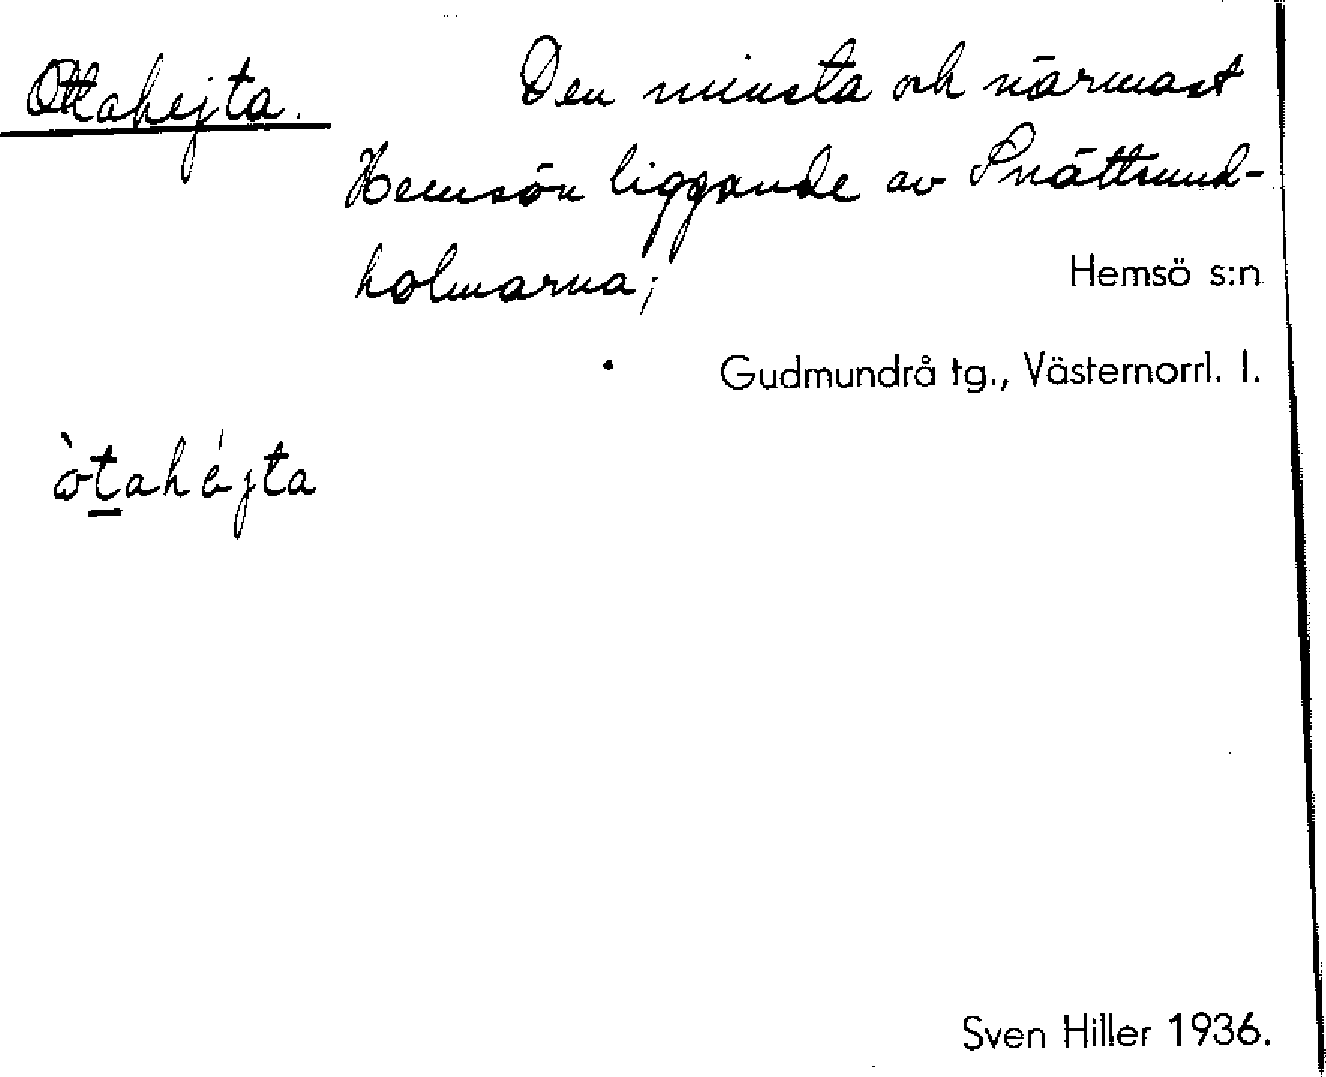 Ottahejta. Den minsta och närmast
Hemsön liggande av Snättsund-
holmarna;
Hemsö s:n
Gudmundrå tg., Västernorrl. l.
òtahéjta
Sven Hiller 1936.